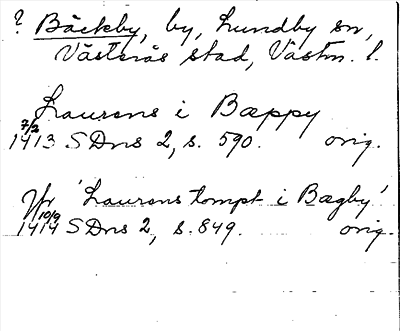 ? Bäckby, by, Lundby sn,
Västerås stad, Västm. l.
Laurens i Bæppy
7/2
1413 SDns 2, s. 590. orig.
Jfr 'Laurens tompt i Bægby'
10/9
1414 SDns 2, s. 849. orig.